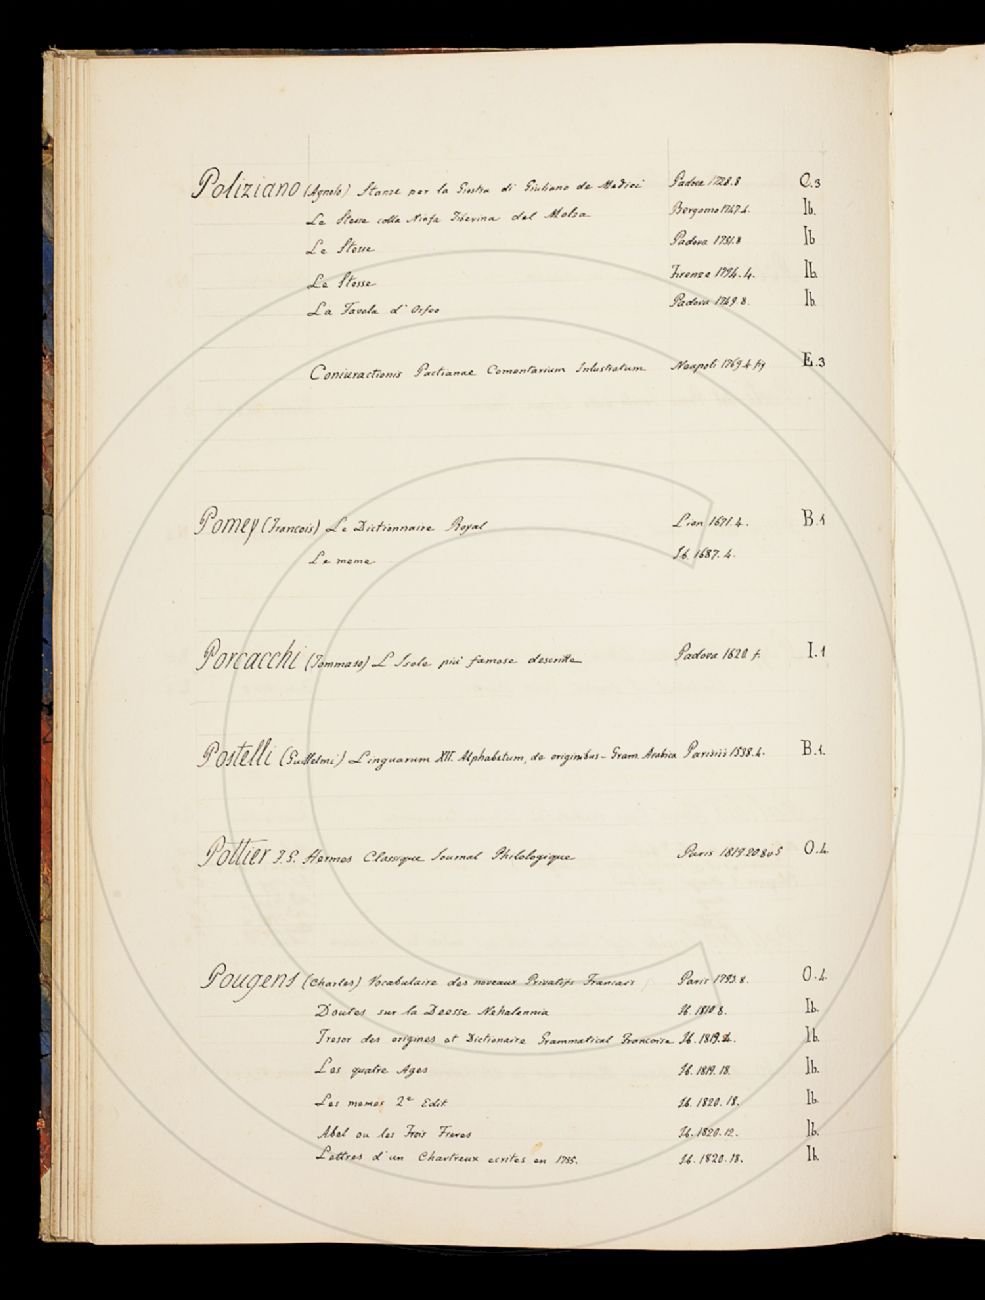 Poliziano (Agnolo) Stanze per la Giostra di Giuliano de Medici Padova 1728.8 O.3
Le Stesse colla Ninfa Tiberina del Molza Bergamo 1747.4. Ib.
Le Stesse Padova 1751.8 Ib
Le Stesse Firenze 1794.4. Ib.
La Favola d'Orfeo Padova 1749.8. Ib.
Coniurationis Pactianae Comentarium Inlustratum Neapoli 1769.4. E.3
Pomey (Francois) Le Dictionnaire Royal Lion 1671.4. B.1
Le meme Ib. 1687.4.
Porcacchi (Tommaso) L'Isole piú famose descritte Padova 1620 f. I.1
Postelli (Guillelmi) Linguarum XII. Alphabetum, de originibus - Gram. Arabica Parisiis 1538.4. B.1.
Pottier J.G. Hermes Classique Journal Philologique Paris 1819.20. O.4.
Pougens (Charles) Vocabulaire des noveaux Privatifs Francais Paris 1793.8. O.4.
Doutes sur la Deesse Nehalennia Ib. 1810.8. Ib.
Tresor des origines et Dictionaire Grammatical Francoise Ib. 1819.4. Ib.
Les quatre Ages Ib. 1819.18. Ib.
Les memes 2e Edit. Ib. 1820.18. Ib.
Abel ou les Trois Freres Ib. 1820.12. Ib.
Lettres d'un Chartreux ecrites en 1755. Ib. 1820.18. Ib.